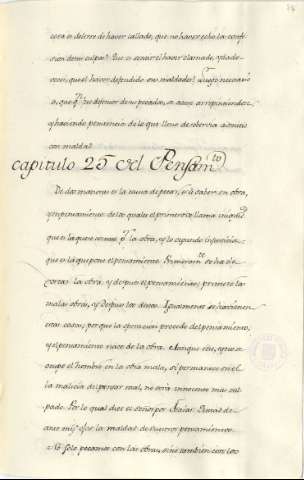 cosa es defensa de haver callado, que no haver echo la confe-
sion de su culpa? Que es
cer, que el haver defendido sus maldades? Luego necesario
es, que qn fue defensor de su pecado, se acuse arrepiendose
y haciendo penitencia de lo que lleno de sobervia admitio
con maldad?
Capitulo 25 del Pensamto
De dos maneras es la causa de pecar, es a saber en obra,
y en pensamiento de los quales el primero se llama iniquidad
que es la que se comete pr la obra, y lo segundo injusticia
que es la que pone el pensamiento. Primeramte se ha de
cortar la obra, y despues el pensamiento; primero las
malas obras, y despues los deseos. Igualmente se
estas cosas, porque la obra procede del pensamiento,
y el pensamiento nace de la obra. Aunque si no se
ocupe el hombre en la obra mala, si permanece en el
la malicia de pensar mal, no sera innocente mas cul-
pado. Por lo qual dice el señor por Isaias: Quitad de
ante mis ojos la maldad de vuestros pensamientos.
No solo pecamos con las obras, sino tambien con los